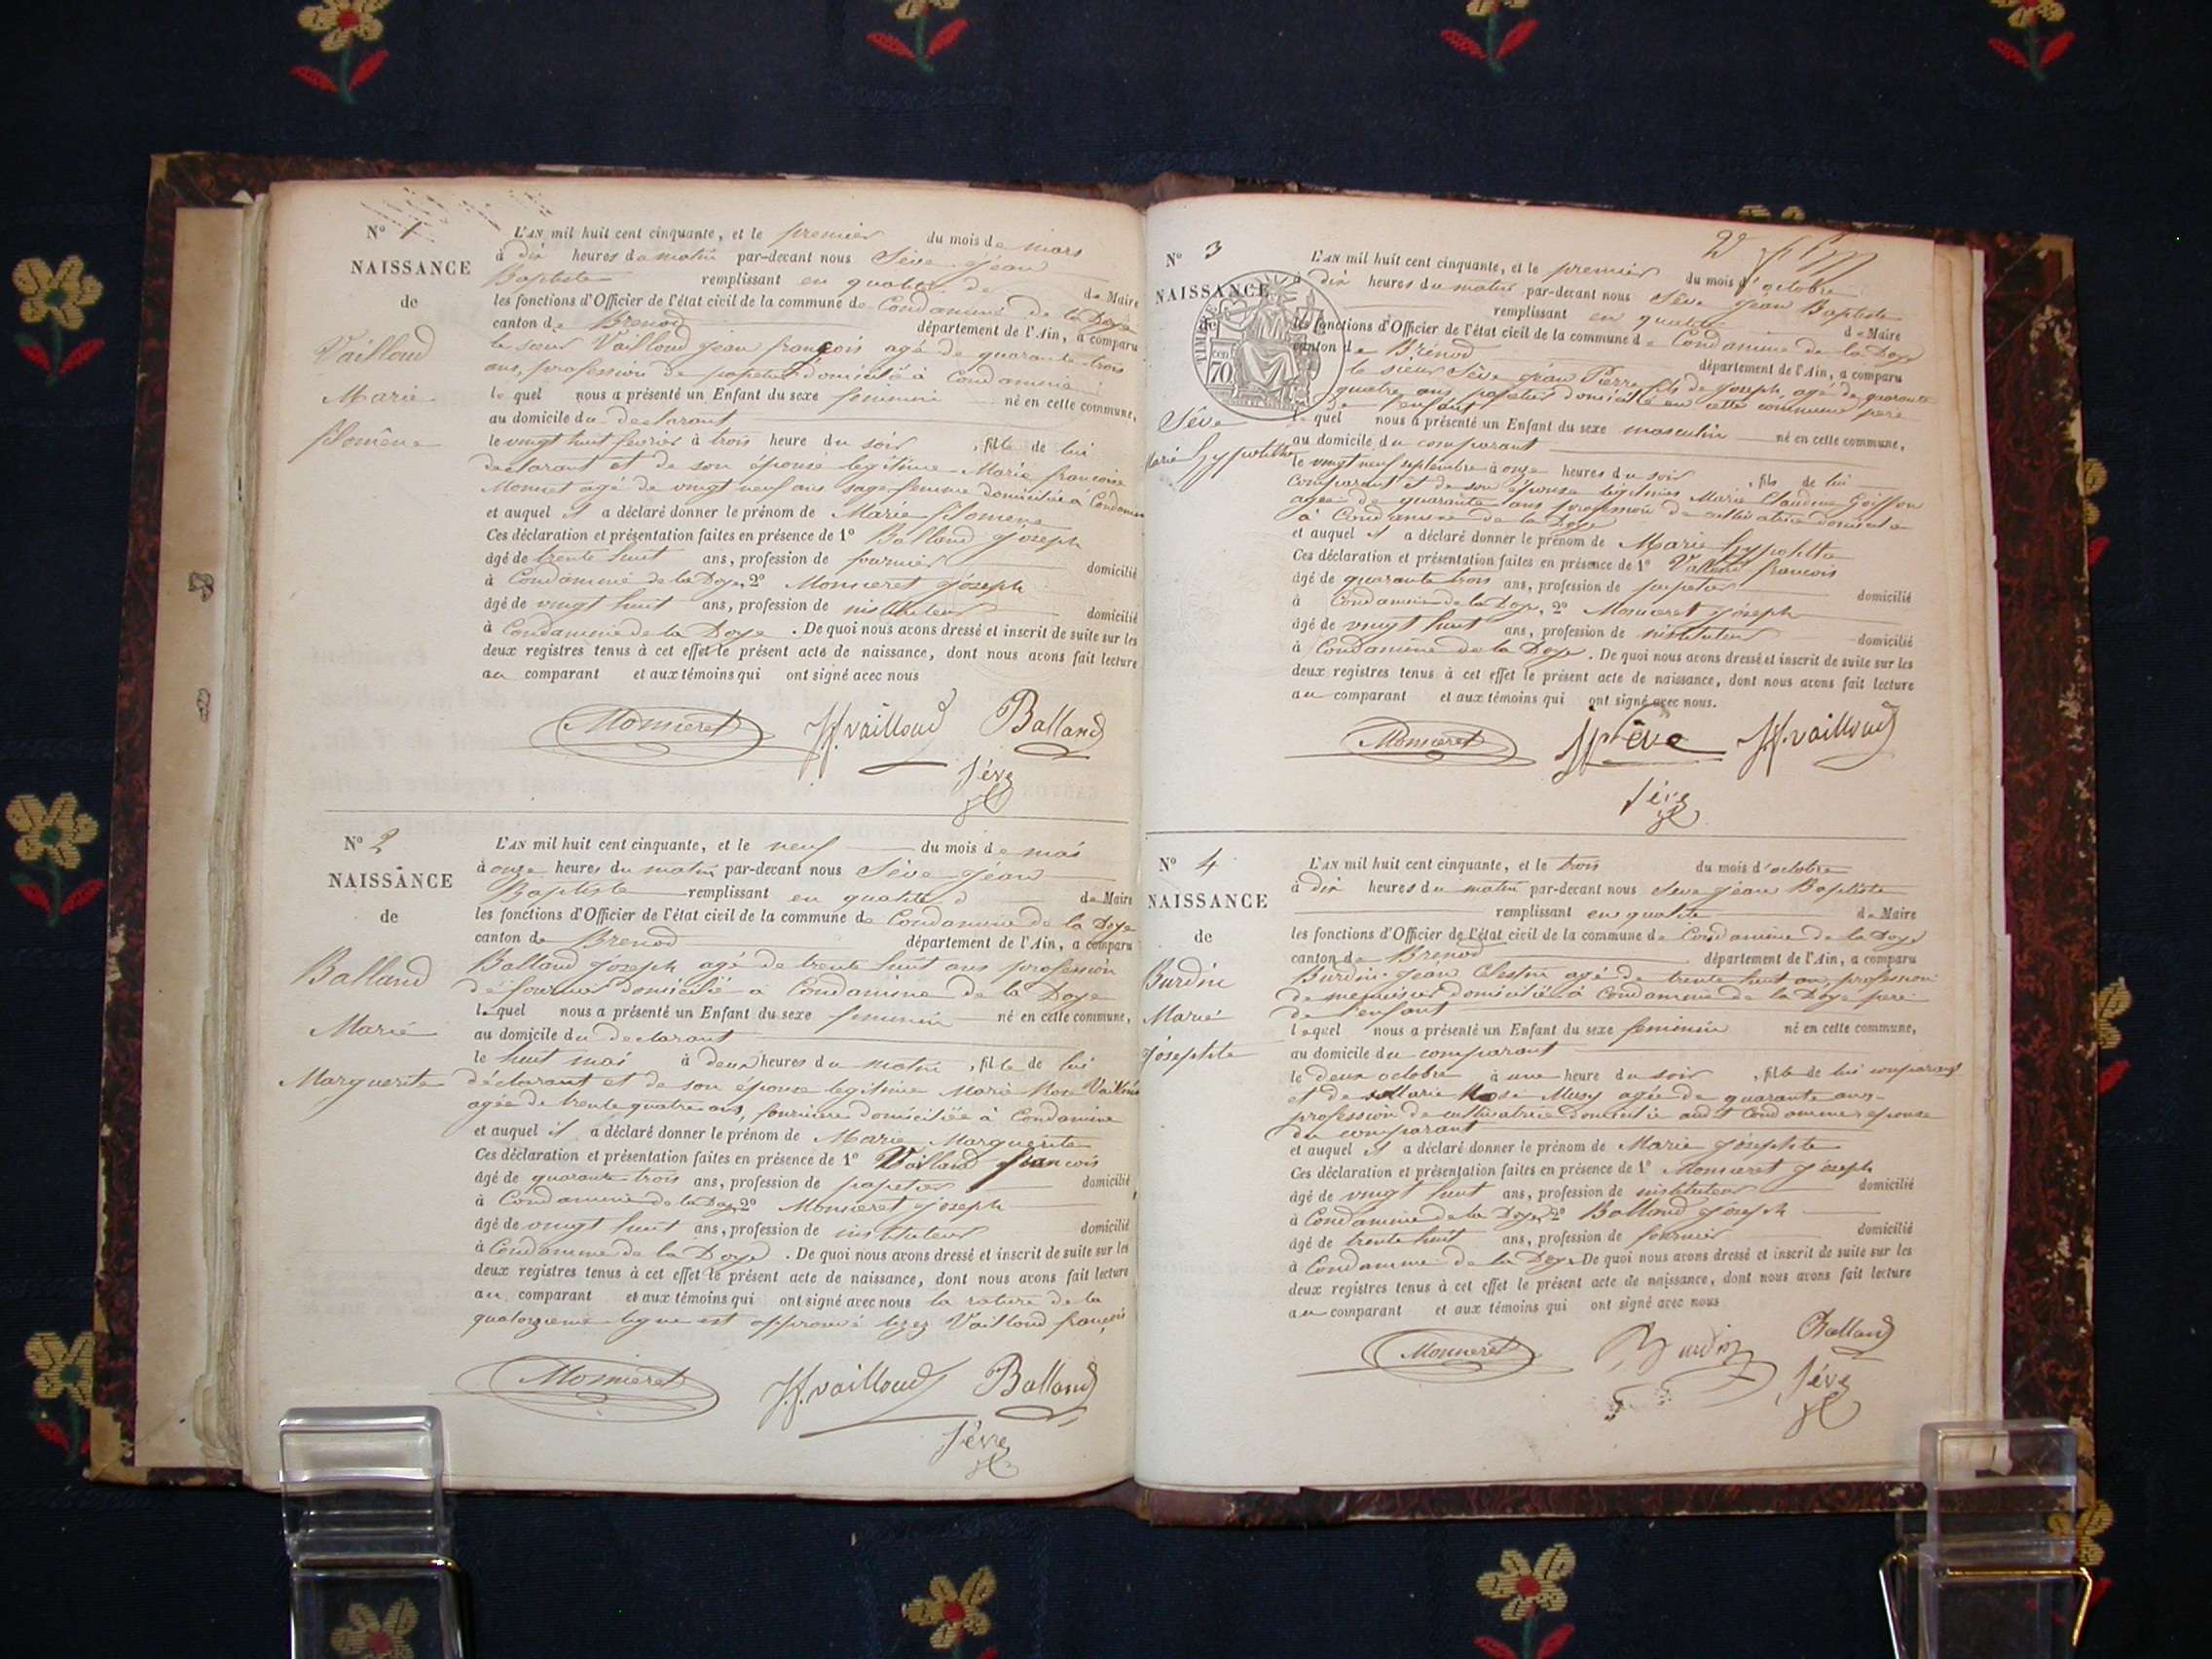 N° 1
NAISSANCE
de
Vailloud
Marie
filomène
L'AN mil huit cent cinquante, et le premier du mois de mars
à dix heures du matin par-devant nous Sève Jéan
Baptiste remplissant en qualité de de Maire
les fonctions d'Officier de l'état civil de la commune de Condamine de la Doye
canton de Brenod département de l'Ain, a comparu
le sieur Vailloud Jean françois agé de quarante trois
ans, profession de papetier domicilié à Condamine
lequel nous a présenté un Enfant du sexe feminin né en cette commune,
au domicile du declarant
le vingt huit fevrier à trois heure du soir, fille de lui
declarant et de son épouse legitime Marie francoise
agé de vingt neuf ans sage femme domiciliée à Condamine
et auquel il a déclaré donner le prénom de Marie filomene
Ces déclaration et présentation faites en présence de 1° Balland Joseph
âgé de trente huit ans, profession de fournier domicilié
à Condamine de la Doye, 2° Monneret Joseph
âgé de vingt huit ans, profession de instituteur domicilié
à Condamine de la Doye. De quoi nous avons dressé et inscrit de suite sur les
deux registres tenus à cet effet le présent acte de naissance, dont nous avons fait lecture
au comparant et aux témoins qui ont signé avec nous
Monneret Jf. vailloud Balland
Sève
N° 2
NAISSANCE
de
Balland
Marie
Marguerite
L'AN mil huit cent cinquante, et le neuf du mois de mai
à onze heures du matin par-devant nous Sève Jéan
Baptiste remplissant en qualité d de Maire
les fonctions d'Officier de l'état civil de la commune de Condamine de la Doye
canton de Brenod département de l'Ain, a comparu
Balland Joseph agé de trente huit ans profession
de fournier domicilié à Condamine de la Doye
lequel nous a présenté un Enfant du sexe feminin né en cette commune,
au domicile du declarant
le huit mai à deux heures du matin, fille de lui
déclarant et de son épouse legitime Marie Rose Vailloud
agée de trente quatre ans, fourniere domiciliée à Condamine
et auquel il a déclaré donner le prénom de Marie Marguerite
Ces déclaration et présentation faites en présence de 1° Vailloud francois
âgé de quarante trois ans, profession de papetier domicilié
à Condamine de la Doye, 2° Monneret Joseph
âgé de vingt huit ans, profession de instituteur domicilié
à Condamine de la Doye. De quoi nous avons dressé et inscrit de suite sur les
deux registres tenus à cet effet le présent acte de naissance, dont nous avons fait lecture
au comparant et aux témoins qui ont signé avec nous la rature de la
quatorzieme ligne est approuvé lizez Vailloud françois
Monneret Jf. vailloud Balland
Sève
N° 3
NAISSANCE
de
TIMBRE
cen
70
Sève
Marie hyppolitte
L'AN mil huit cent cinquante, et le premier du mois d'octobre
à dix heures du matin par-devant nous Sève Jéan Baptiste
remplissant en qualité de Maire
les fonctions d'Officier de l'état civil de la commune de Condamine de la Doye
canton de Brénod département de l'Ain, a comparu
le sieur Sève Jéan Pierre fils de Joseph, agé de quarante
quatre ans, papetier domicilié en cette commune pere
de l'enfant
lequel nous a présenté un Enfant du sexe masculin né en cette commune,
au domicile du comparant
le vingt neuf septembre à onze heures du soir, fils de lui
comparant et de son épouse legitime Marie Claudine Goiffon
agée de quarante ans profession de cultivatrice domicilié
à Condamine de la Doye
et auquel il a déclaré donner le prénom de Marie hypolitte
Ces déclaration et présentation faites en présence de 1° Vailloud francois
âgé de quarante trois ans, profession de papetier domicilié
à Condamine de la Doye, 2° Monneret Joseph
âgé de vingt huit ans, profession de instituteur domicilié
à Condamine de la Doye. De quoi nous avons dressé et inscrit de suite sur les
deux registres tenus à cet effet le présent acte de naissance, dont nous avons fait lecture
au comparant et aux témoins qui ont signé avec nous.
Monneret Sève Jf. vailloud
Sève
N° 4
NAISSANCE
de
Burdin
Marie
Joséphte
L'AN mil huit cent cinquante, et le trois du mois d'octobre
à dix heures du matin par-devant nous Seve Jéan Baptiste
remplissant en qualite de Maire
les fonctions d'Officier de l'état civil de la commune de Condamine de la Doye
canton de Brenod département de l'Ain, a comparu
Burdin Jéan Clestin agé de trente huit ans, profession
de menuisier domicilié à Condamine de la Doye pere
de l'enfant
lequel nous a présenté un Enfant du sexe feminin né en cette commune,
au domicile du comparant
le deux octobre à une heure du soir, fille de lui comparant
et de Marie Rose Musy agée de quarante ans
profession de cultivatrice domicilié audit Condamine epouse
du comparant
et auquel il a déclaré donner le prénom de Marie Joséphte
Ces déclaration et présentation faites en présence de 1° Monneret Joseph
âgé de vingt huit ans, profession de instituteur domicilié
à Condamine de la Doye, 2° Balland Joseph
âgé de trente huit ans, profession de fournier domicilié
à Condamine de la Doye. De quoi nous avons dressé et inscrit de suite sur les
deux registres tenus à cet effet le présent acte de naissance, dont nous avons fait lecture
au comparant et aux témoins qui ont signé avec nous
Monneret Burdin Balland
Sève